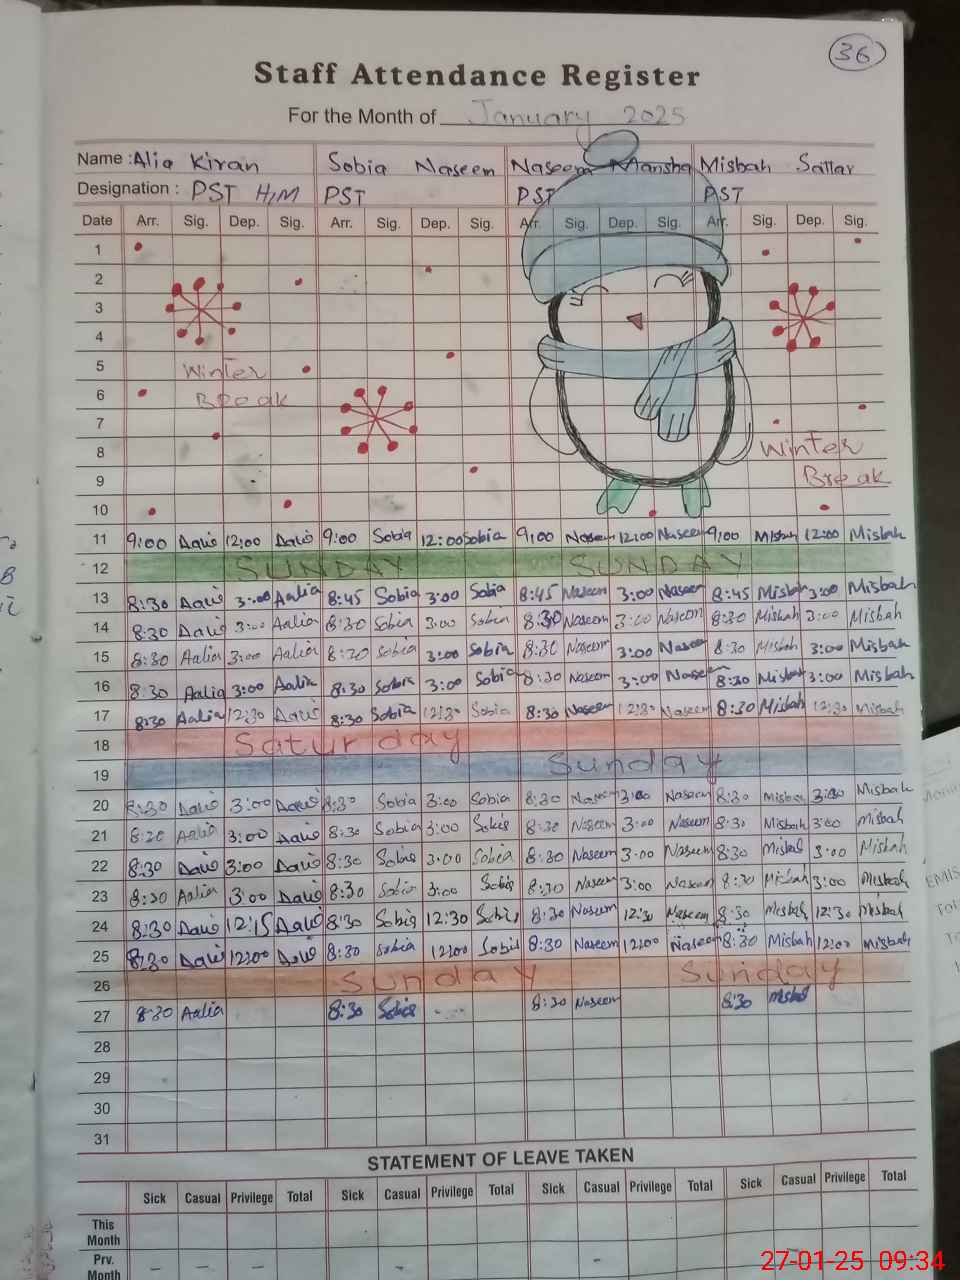 36
Staff Attendance Register
For the Month of January 2025
Name : Alia Kiran Sobia Naseem Naseem Mansha Misbah Sattar
Designation : PST H/M PST PST PST
Date Arr. Sig. Dep. Sig. Arr. Sig. Dep. Sig. Arr. Sig. Dep. Sig. Arr. Sig. Dep. Sig.
1
2
3
4
5 Winter
6 Break
7
8 Winter
9 Break
10
11 9:00 Aalia 12:00 Aalia 9:00 Sobia 12:00 Sobia 9:00 Naseem 12:00 Naseem 9:00 Misbah 12:00 Misbah
12 SUNDAY SUNDAY
13 8:30 Aalia 3:00 Aalia 8:45 Sobia 3:00 Sobia 8:45 Naseem 3:00 Naseem 8:45 Misbah 3:00 Misbah
14 8:30 Aalia 3:00 Aalia 8:30 Sobia 3:00 Sobia 8:30 Naseem 3:00 Naseem 8:30 Misbah 3:00 Misbah
15 8:30 Aalia 3:00 Aalia 8:30 Sobia 3:00 Sobia 8:30 Naseem 3:00 Naseem 8:30 Misbah 3:00 Misbah
16 8:30 Aalia 3:00 Aalia 8:30 Sobia 3:00 Sobia 8:30 Naseem 3:00 Naseem 8:30 Misbah 3:00 Misbah
17 8:30 Aalia 12:30 Aalia 8:30 Sobia 12:30 Sobia 8:30 Naseem 12:30 Naseem 8:30 Misbah 12:30 Misbah
18 Saturday
19 Sunday
20 8:30 Aalia 3:00 Aalia 8:30 Sobia 3:00 Sobia 8:30 Naseem 3:00 Naseem 8:30 Misbah 3:00 Misbah
21 8:30 Aalia 3:00 Aalia 8:30 Sobia 3:00 Sobia 8:30 Naseem 3:00 Naseem 8:30 Misbah 3:00 Misbah
22 8:30 Aalia 3:00 Aalia 8:30 Sobia 3:00 Sobia 8:30 Naseem 3:00 Naseem 8:30 Misbah 3:00 Misbah
23 8:30 Aalia 3:00 Aalia 8:30 Sobia 3:00 Sobia 8:30 Naseem 3:00 Naseem 8:30 Misbah 3:00 Misbah
24 8:30 Aalia 12:15 Aalia 8:30 Sobia 12:30 Sobia 8:30 Naseem 12:30 Naseem 8:30 Misbah 12:30 Misbah
25 8:30 Aalia 12:00 Aalia 8:30 Sobia 12:00 Sobia 8:30 Naseem 12:00 Naseem 8:30 Misbah 12:00 Misbah
26 Sunday Sunday
27 8:30 Aalia 8:30 Sobia 8:30 Naseem 8:30 Misbah
28
29
30
31
STATEMENT OF LEAVE TAKEN
Sick Casual Privilege Total Sick Casual Privilege Total Sick Casual Privilege Total Sick Casual Privilege Total
This Month
Prv. Month – – – – – –
EMIS
27-01-25 09:34